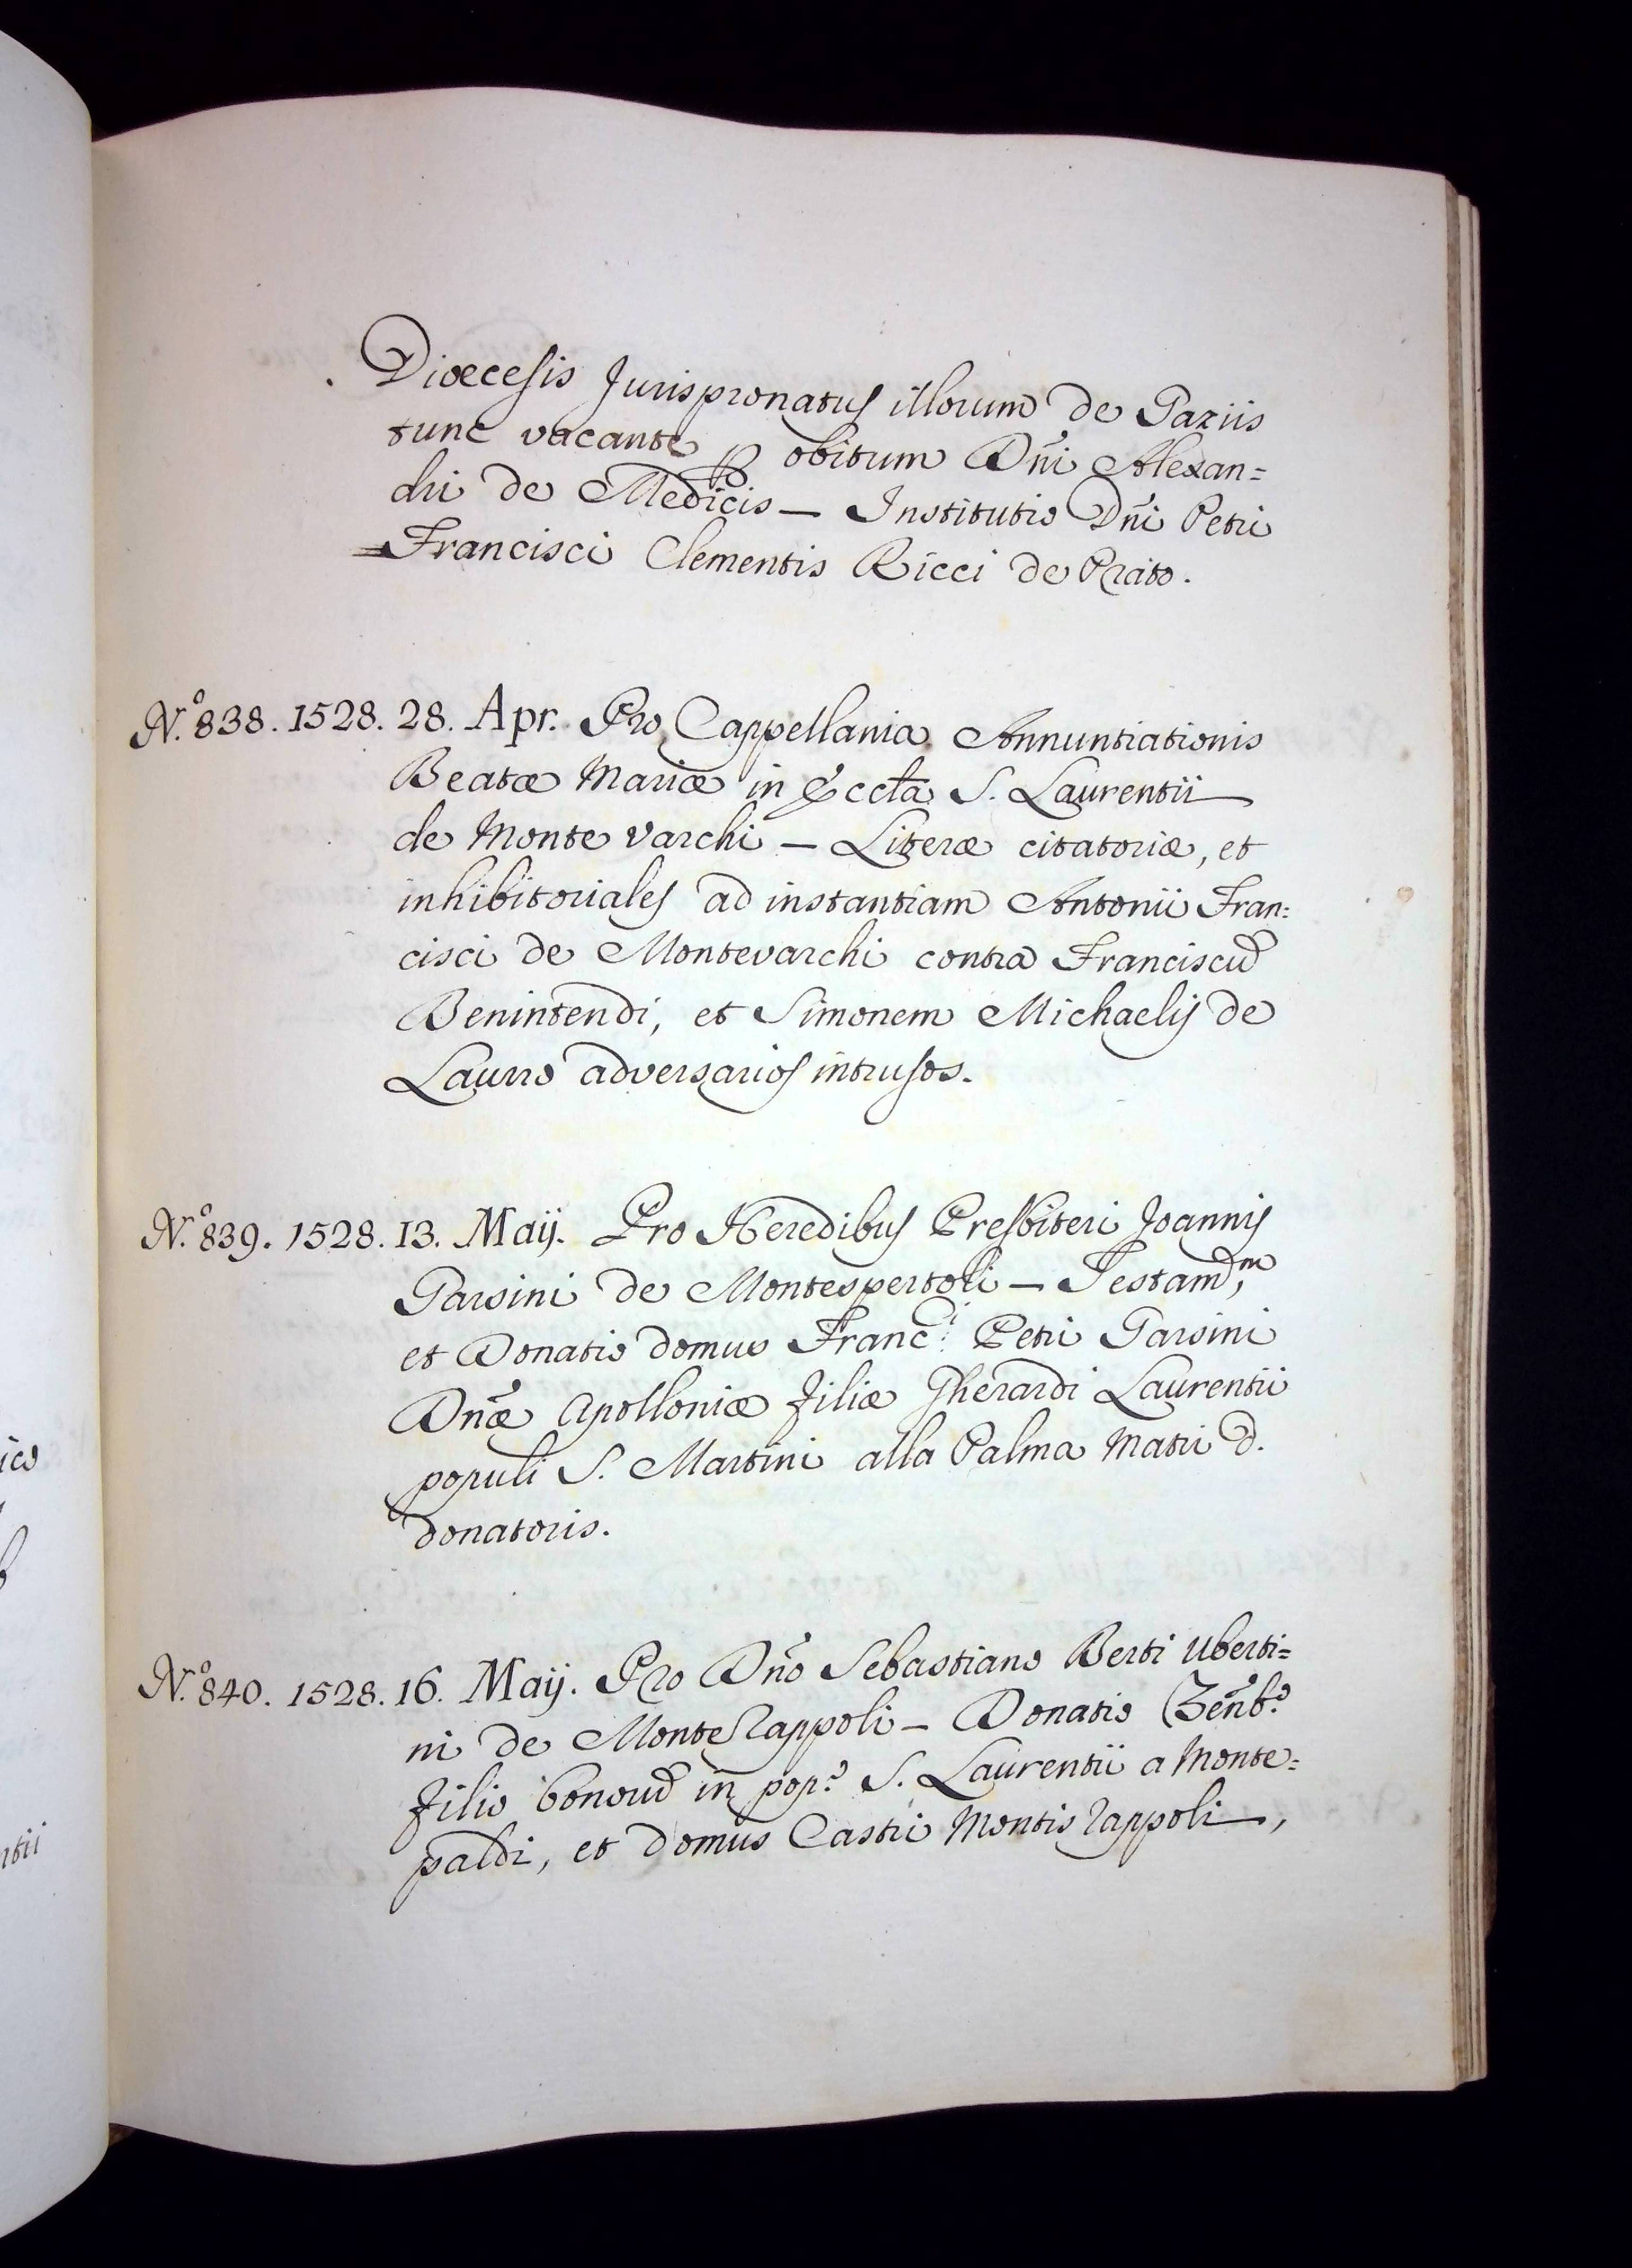 Diœcesis Jurispronatus illorum de Paziis
tunc vacante ꝑ obitum Dñi Alexan=
dri de Medicis — Institutio Dñi Petri
Francisci Clementis Ricci de Prato.
N.º 838. 1528. 28. Apr. Pro Cappellania Annuntiationis
Beatæ Mariæ in Eccła S. Laurentii
de Monte Varchi — Literæ citatoriæ, et
inhibitoriales ad instantiam Antonii Fran=
cisci de Montevarchi contra Franciscū
Benintendi, et Simonem Michaelis de
Lauro adversarios intrusos.
N.º 839. 1528. 13. Maij. Pro Heredibus Presbiteri Joannis
Parsini de Montespertoli — Testam.m,
et Donatio domus Franc.i Petri Parsini
Dñæ Apolloniæ filiæ Gherardi Laurentii
populi S. Martini alla Palma Matri d.
donatoris.
N.º 840. 1528. 16. Maij. Pro Dño Sebastiano Berti Uberti=
ni de Monte Rappoli — Donatio
filio bonorū in pop.o S. Laurentii a Monte=
paldi, et domus Castri Montis Rappoli,
ntii